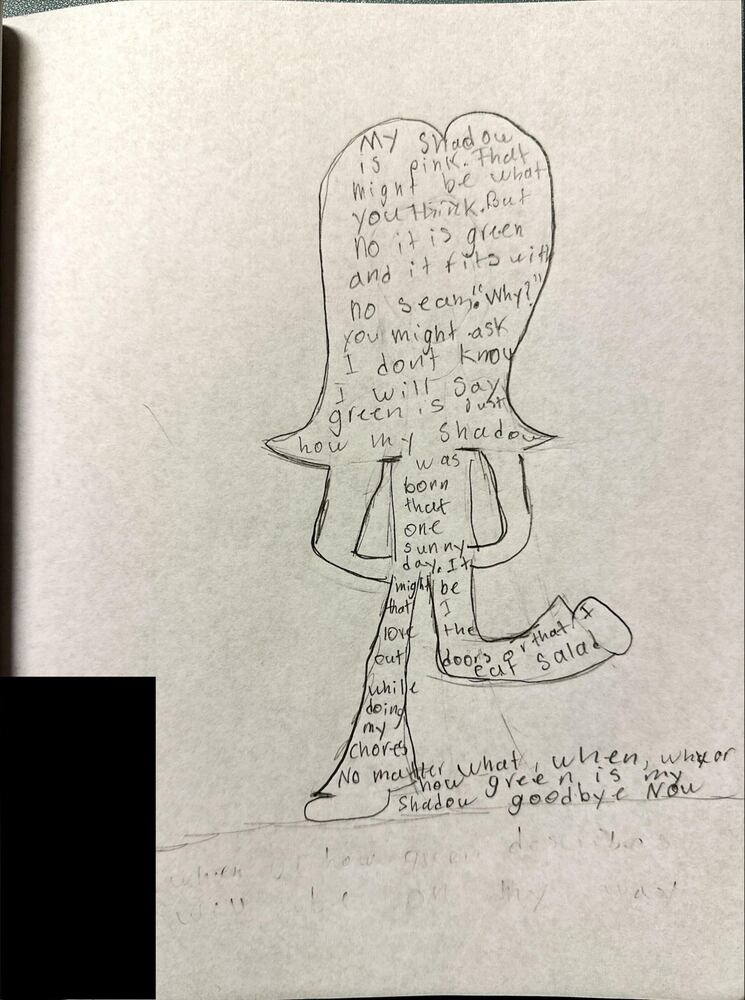 My shadow
is pink. That
might be what
you think. But
no it is green
and it fits with
no seam. "Why?"
you might ask
I don't know
I will say
green is just
how my shadow
was
born
that
one
sunny
day. It
might be
that I
love the
out doors or that I
eat salad
while
doing
my
chores
No matter what, when, why or
how green is my
shadow goodbye Now
when or how green describes
will be on my way